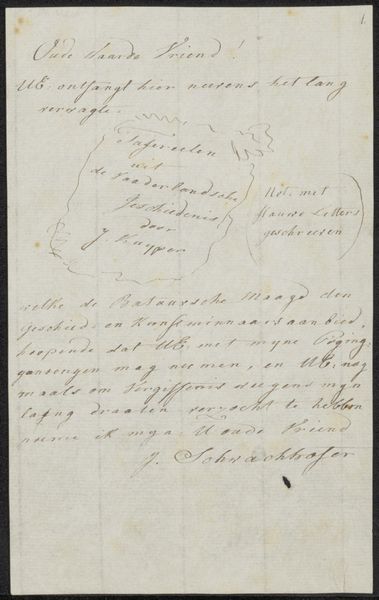 1.
Oude Waarde Vriend!
UE: ontfangt hier nevens het lang
verwagte.
Tafereelen
uit
de Vaderlandsche
Geschiedenis
door
J Kuyper
Not. met
flauwe Letters
geschreeven
welke de Bataafsche Maagd den
Geschied- en Kunstminnaar aanbied,
hoopende dat UE: met myne
mag neemen, en UE: nog
maals om Vergiffenis weegens myn
lang draalen verzocht te hebben
noeme ik my U oude Vriend
J. Schwachhofer